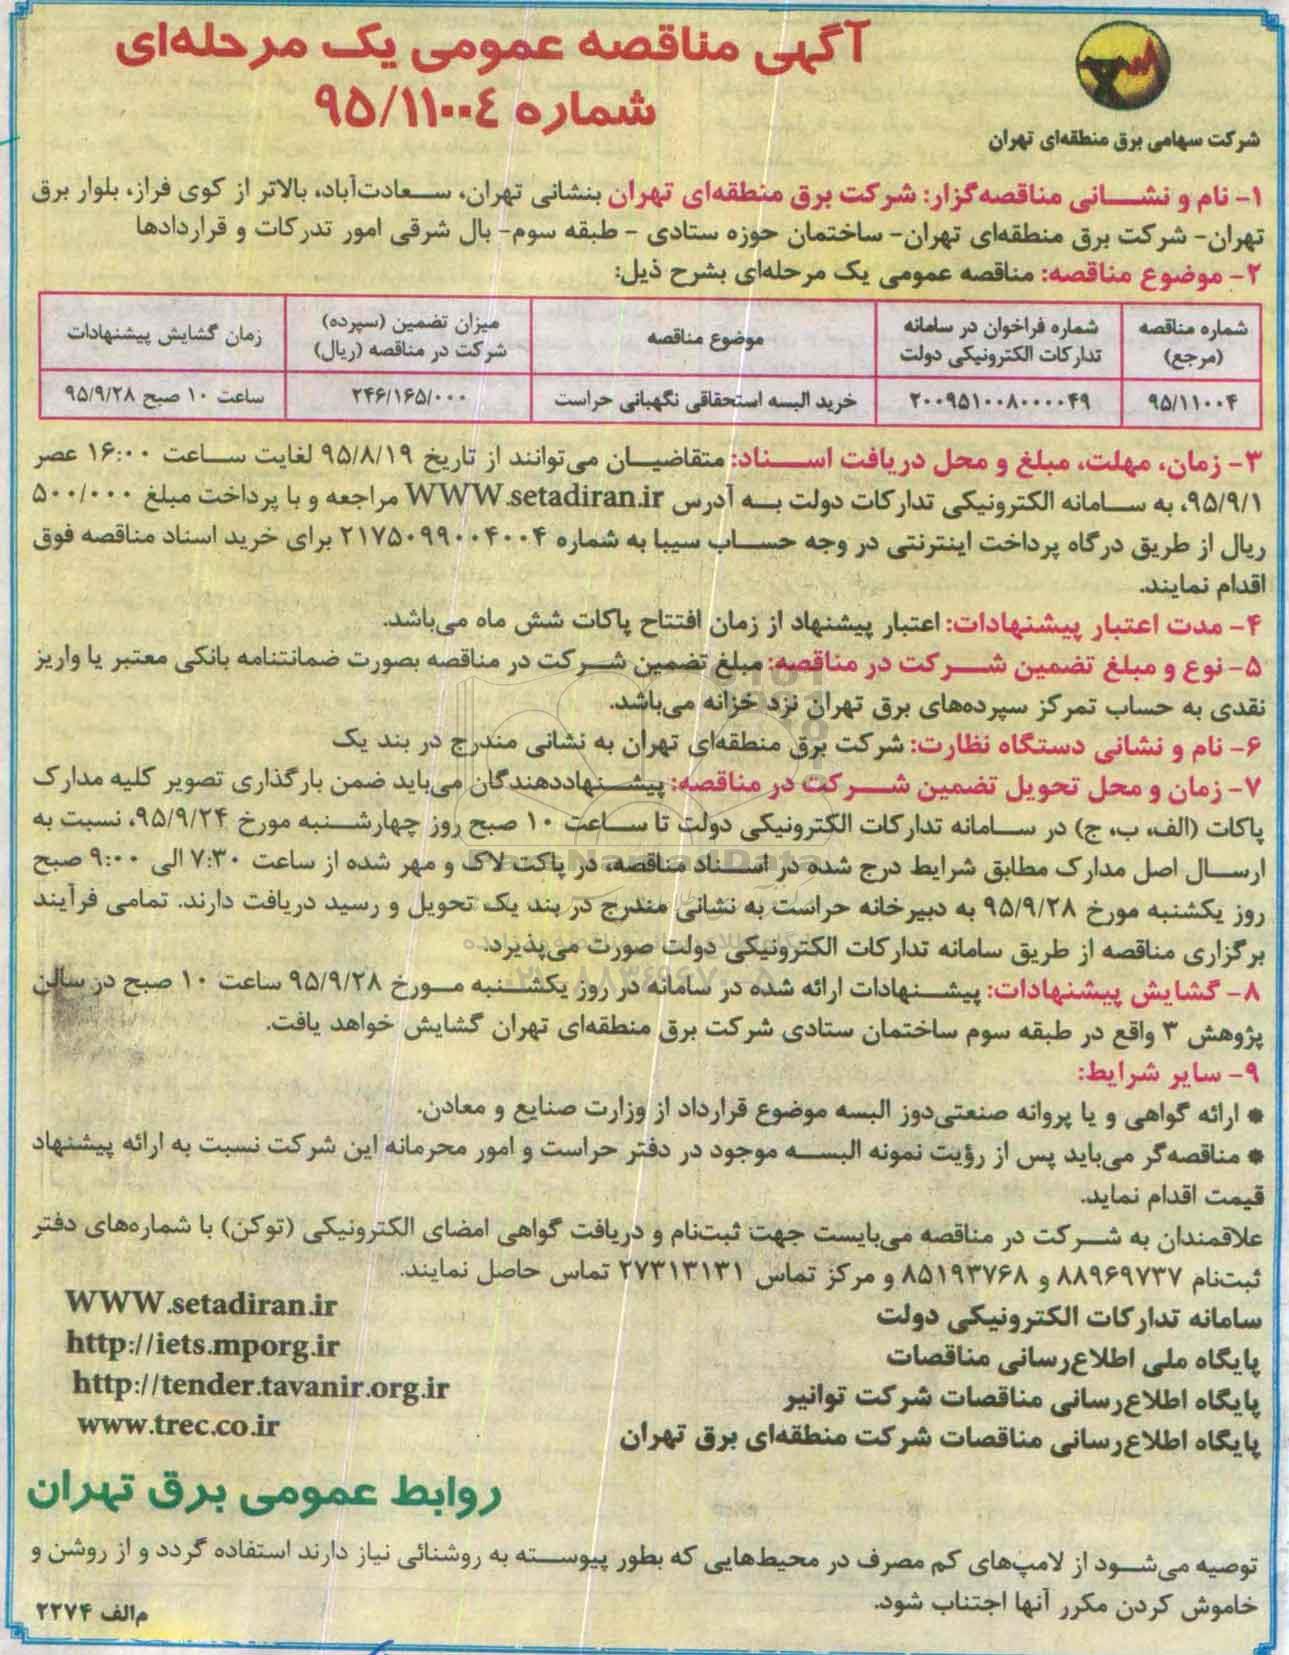 آگهی مناقصه عمومی یک مرحله‌ای
شماره ۹۵/۱۱۰۰۴
شرکت سهامی برق منطقه‌ای تهران
۱- نام و نشانی مناقصه‌گزار: شرکت برق منطقه‌ای تهران بنشانی تهران، سعادت‌آباد، بالاتر از کوی فراز، بلوار برق
تهران- شرکت برق منطقه‌ای تهران- ساختمان حوزه ستادی - طبقه سوم- بال شرقی امور تدرکات و قراردادها
۲- موضوع مناقصه: مناقصه عمومی یک مرحله‌ای بشرح ذیل:
شماره مناقصه (مرجع) شماره فراخوان در سامانه تدارکات الکترونیکی دولت موضوع مناقصه میزان تضمین (سپرده) شرکت در مناقصه (ریال) زمان گشایش پیشنهادات
۹۵/۱۱۰۰۴ ۲۰۰۹۵۱۰۰۸۰۰۰۰۴۹ خرید البسه استحقاقی نگهبانی حراست ۲۴۶/۱۶۵/۰۰۰ ساعت ۱۰ صبح ۹۵/۹/۲۸
۳- زمان، مهلت، مبلغ و محل دریافت اسناد: متقاضیان می‌توانند از تاریخ ۹۵/۸/۱۹ لغایت ساعت ۱۶:۰۰ عصر
۹۵/۹/۱، به سامانه الکترونیکی تدارکات دولت به آدرس WWW.setadiran.ir مراجعه و با پرداخت مبلغ ۵۰۰/۰۰۰
ریال از طریق درگاه پرداخت اینترنتی در وجه حساب سیبا به شماره ۲۱۷۵۰۹۹۰۰۴۰۰۴ برای خرید اسناد مناقصه فوق
اقدام نمایند.
۴- مدت اعتبار پیشنهادات: اعتبار پیشنهاد از زمان افتتاح پاکات شش ماه می‌باشد.
۵- نوع و مبلغ تضمین شرکت در مناقصه: مبلغ تضمین شرکت در مناقصه بصورت ضمانتنامه بانکی معتبر یا واریز
نقدی به حساب تمرکز سپرده‌های برق تهران نزد خزانه می‌باشد.
۶- نام و نشانی دستگاه نظارت: شرکت برق منطقه‌ای تهران به نشانی مندرج در بند یک
۷- زمان و محل تحویل تضمین شرکت در مناقصه: پیشنهاددهندگان می‌باید ضمن بارگذاری تصویر کلیه مدارک
پاکات (الف، ب، ج) در سامانه تدارکات الکترونیکی دولت تا ساعت ۱۰ صبح روز چهارشنبه مورخ ۹۵/۹/۲۴، نسبت به
ارسال اصل مدارک مطابق شرایط درج شده در اسناد مناقصه، در پاکت لاک و مهر شده از ساعت ۷:۳۰ الی ۹:۰۰ صبح
روز یکشنبه مورخ ۹۵/۹/۲۸ به دبیرخانه حراست به نشانی مندرج در بند یک تحویل و رسید دریافت دارند. تمامی فرآیند
برگزاری مناقصه از طریق سامانه تدارکات الکترونیکی دولت صورت می‌پذیرد.
۸- گشایش پیشنهادات: پیشنهادات ارائه شده در سامانه در روز یکشنبه مورخ ۹۵/۹/۲۸ ساعت ۱۰ صبح در سالن
پژوهش ۳ واقع در طبقه سوم ساختمان ستادی شرکت برق منطقه‌ای تهران گشایش خواهد یافت.
۹- سایر شرایط:
* ارائه گواهی و یا پروانه صنعتی‌دوز البسه موضوع قرارداد از وزارت صنایع و معادن.
* مناقصه‌گر می‌باید پس از رؤیت نمونه البسه موجود در دفتر حراست و امور محرمانه این شرکت نسبت به ارائه پیشنهاد
قیمت اقدام نماید.
علاقمندان به شرکت در مناقصه می‌بایست جهت ثبت‌نام و دریافت گواهی امضای الکترونیکی (توکن) با شماره‌های دفتر
ثبت‌نام ۸۸۹۶۹۷۳۷ و ۸۵۱۹۳۷۶۸ و مرکز تماس ۲۷۳۱۳۱۳۱ تماس حاصل نمایند.
سامانه تدارکات الکترونیکی دولت WWW.setadiran.ir
پایگاه ملی اطلاع‌رسانی مناقصات http://iets.mporg.ir
پایگاه اطلاع‌رسانی مناقصات شرکت توانیر http://tender.tavanir.org.ir
پایگاه اطلاع‌رسانی مناقصات شرکت منطقه‌ای برق تهران www.trec.co.ir
روابط عمومی برق تهران
توصیه می‌شود از لامپ‌های کم مصرف در محیط‌هایی که بطور پیوسته به روشنائی نیاز دارند استفاده گردد و از روشن و
خاموش کردن مکرر آنها اجتناب شود.
م‌الف ۲۲۷۴